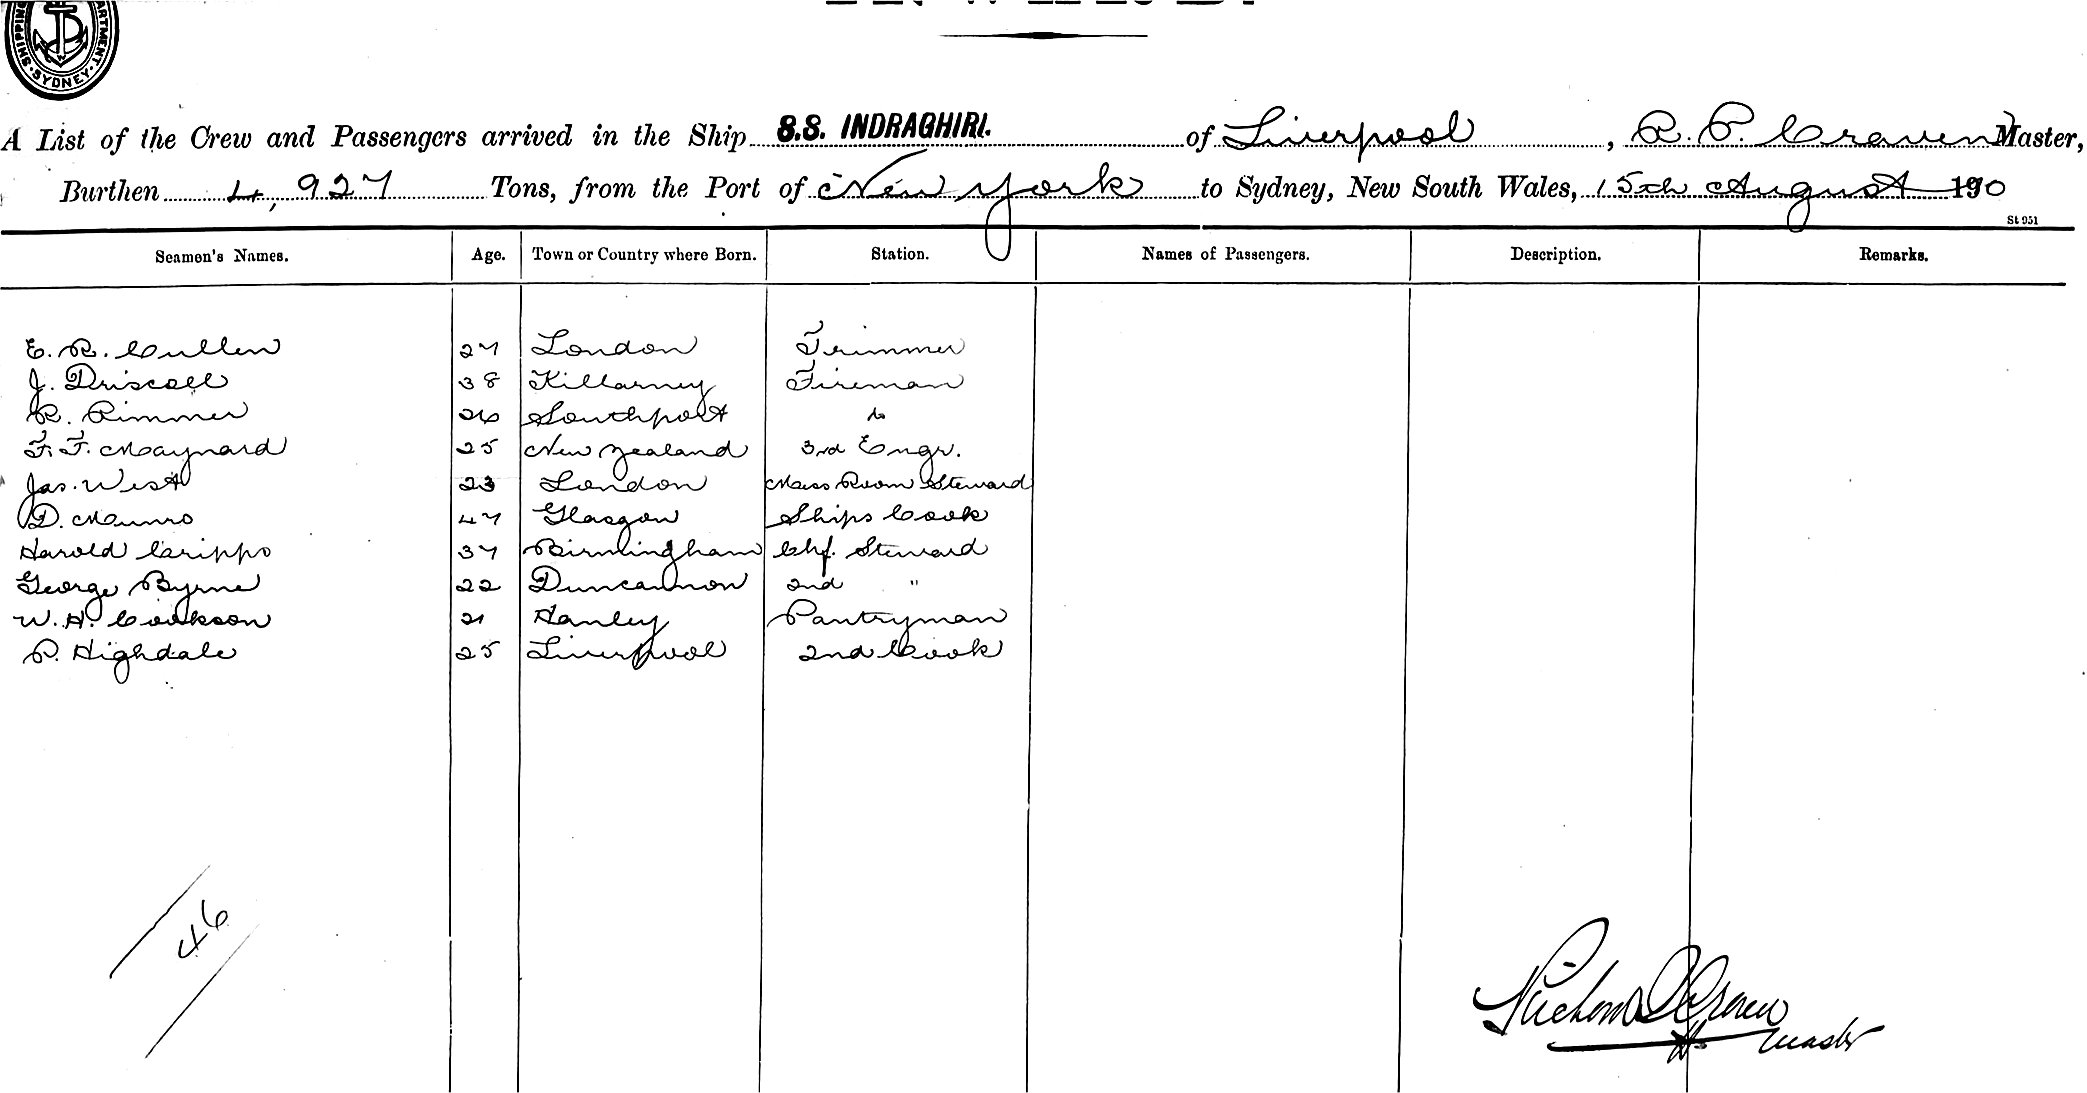 SHIPPING DEPARTMENT. SYDNEY.
A List of the Crew and Passengers arrived in the Ship S.S. INDRAGHIRI. of Liverpool, R. P. Craven Master,
Burthen 4,927 Tons, from the Port of New York to Sydney, New South Wales, 15th August 1910
St 951
Seamen's Names. Age. Town or Country where Born. Station. Names of Passengers. Description. Remarks.
E. R. Cullen 27 London Trimmer
J. Driscoll 38 Killarney Fireman
R. Rimmer 26 Southport do
F. F. Maynard 25 New Zealand 3rd Engr.
Jas. West 23 London Mess Room Steward
D. Munro 47 Glasgow Ships Cook
Harold Cripps 37 Birmingham Chf. Steward
George Byrne 22 Duncannon 2nd "
W. H. Cookson 21 Hanley Pantryman
P. Highdale 25 Liverpool 2nd Cook
46
Richard P Craven
Master